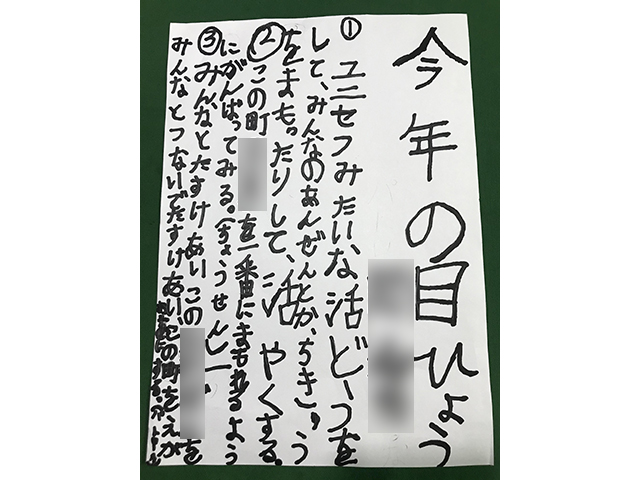 今年の目ひょう
① ユニセフみたいな活どーつを
して、みんなのあんぜんとか、ちきゅう
をまもったりして、活やくする。
②この町を一番にまもれるよう
にがんばってみる。(ちょうせん
③みんなとたすけあいこのを
みんなとつないでたすけあい、この町をえが